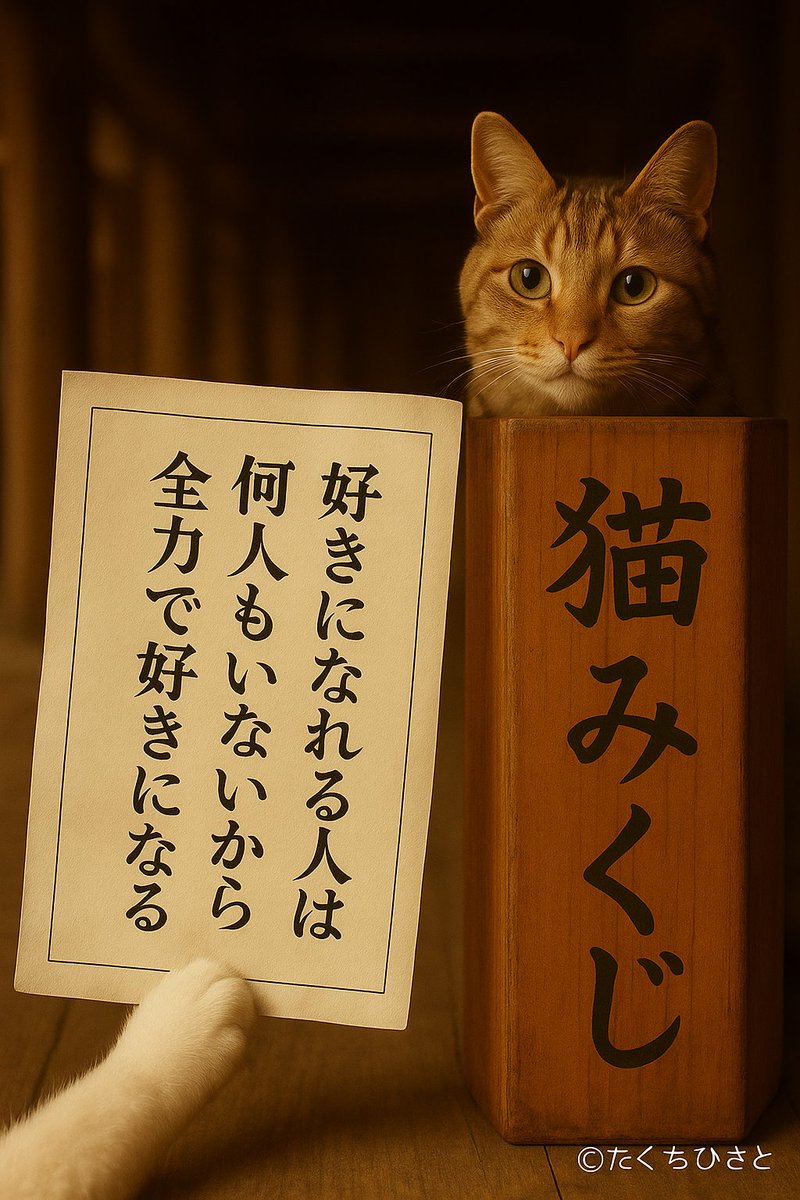 好きになれる人は
何人もいないから
全力で好きになる
猫みくじ
©たくちひさと